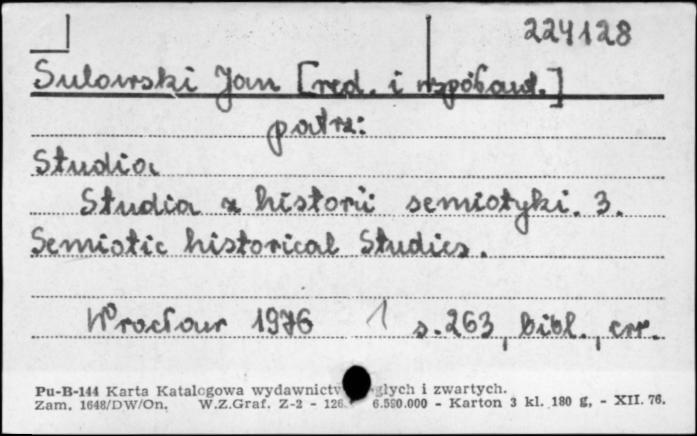 224128
Sulowski Jan [red. i współaut.]
patrz:
Studia
Studia z historii semiotyki. 3.
Semiotic historical Studies.
Wrocław 1976 1 s. 263, bibl., err.
Pu-B-144 Karta Katalogowa wydawnictw i zwartych.
Zam. 1648/DW/On. W.Z.Graf. Z-2 - 6.500.000 - Karton 3 kl. 180 g, - XII. 76.